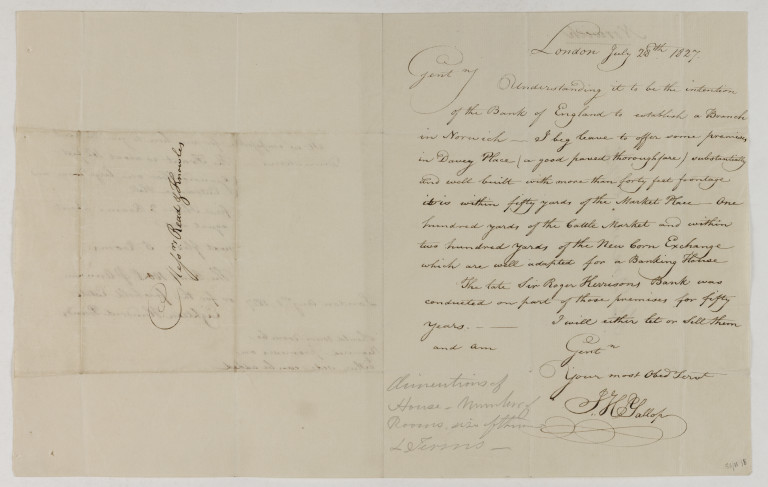 Norwich
London July 28th 1827
Gentn
Understanding it to be the intention
of the Bank of England to establish a Branch
in Norwich — I beg leave to offer some premises
in Davey Place (a good paved thoroughfare) substantially
and well built with more than forty feet frontage
is within fifty yards of the Market Place — One
hundred yards of the Cattle Market and within
two hundred yards of the New Corn Exchange
which are well adapted for a Banking House
The late Sir Roger Kerrisons Bank was
conducted on part of those premises for fifty
years. — — I will either let or Sell them
and am
Gentn
Your most Obed Servt
Gallop
Dimentions of
House — Number of
Rooms, size of them
& Terms —
Messrs Read & Knowles